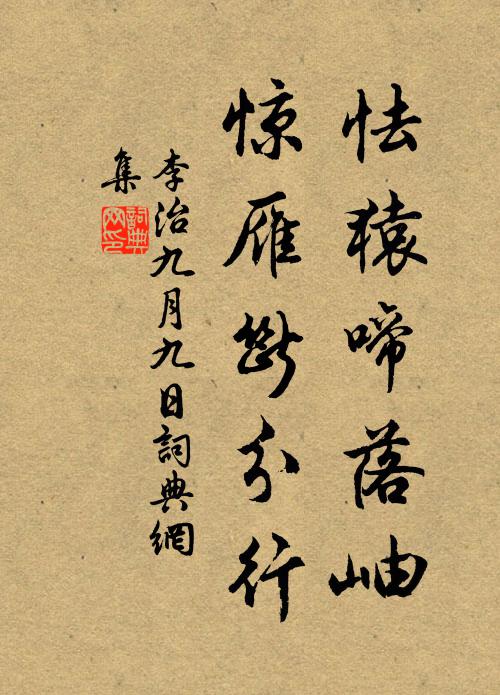 怯猿啼落岫
惊雁斷分行
李治九月九日詞典網
集
詞典
网印